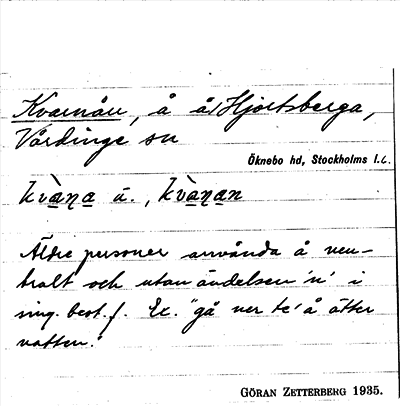 Kvarnån, å å Hjortsberga,
Vårdinge sn
Öknebo hd, Stockholms l.
kvàṇa u., kvàṇan
Äldre personer använda å neu-
tralt och utan ändelsen 'n' i
sing. best. f. Ex. "gå ner te' å ätter
vatten."
GÖRAN ZETTERBERG 1935.